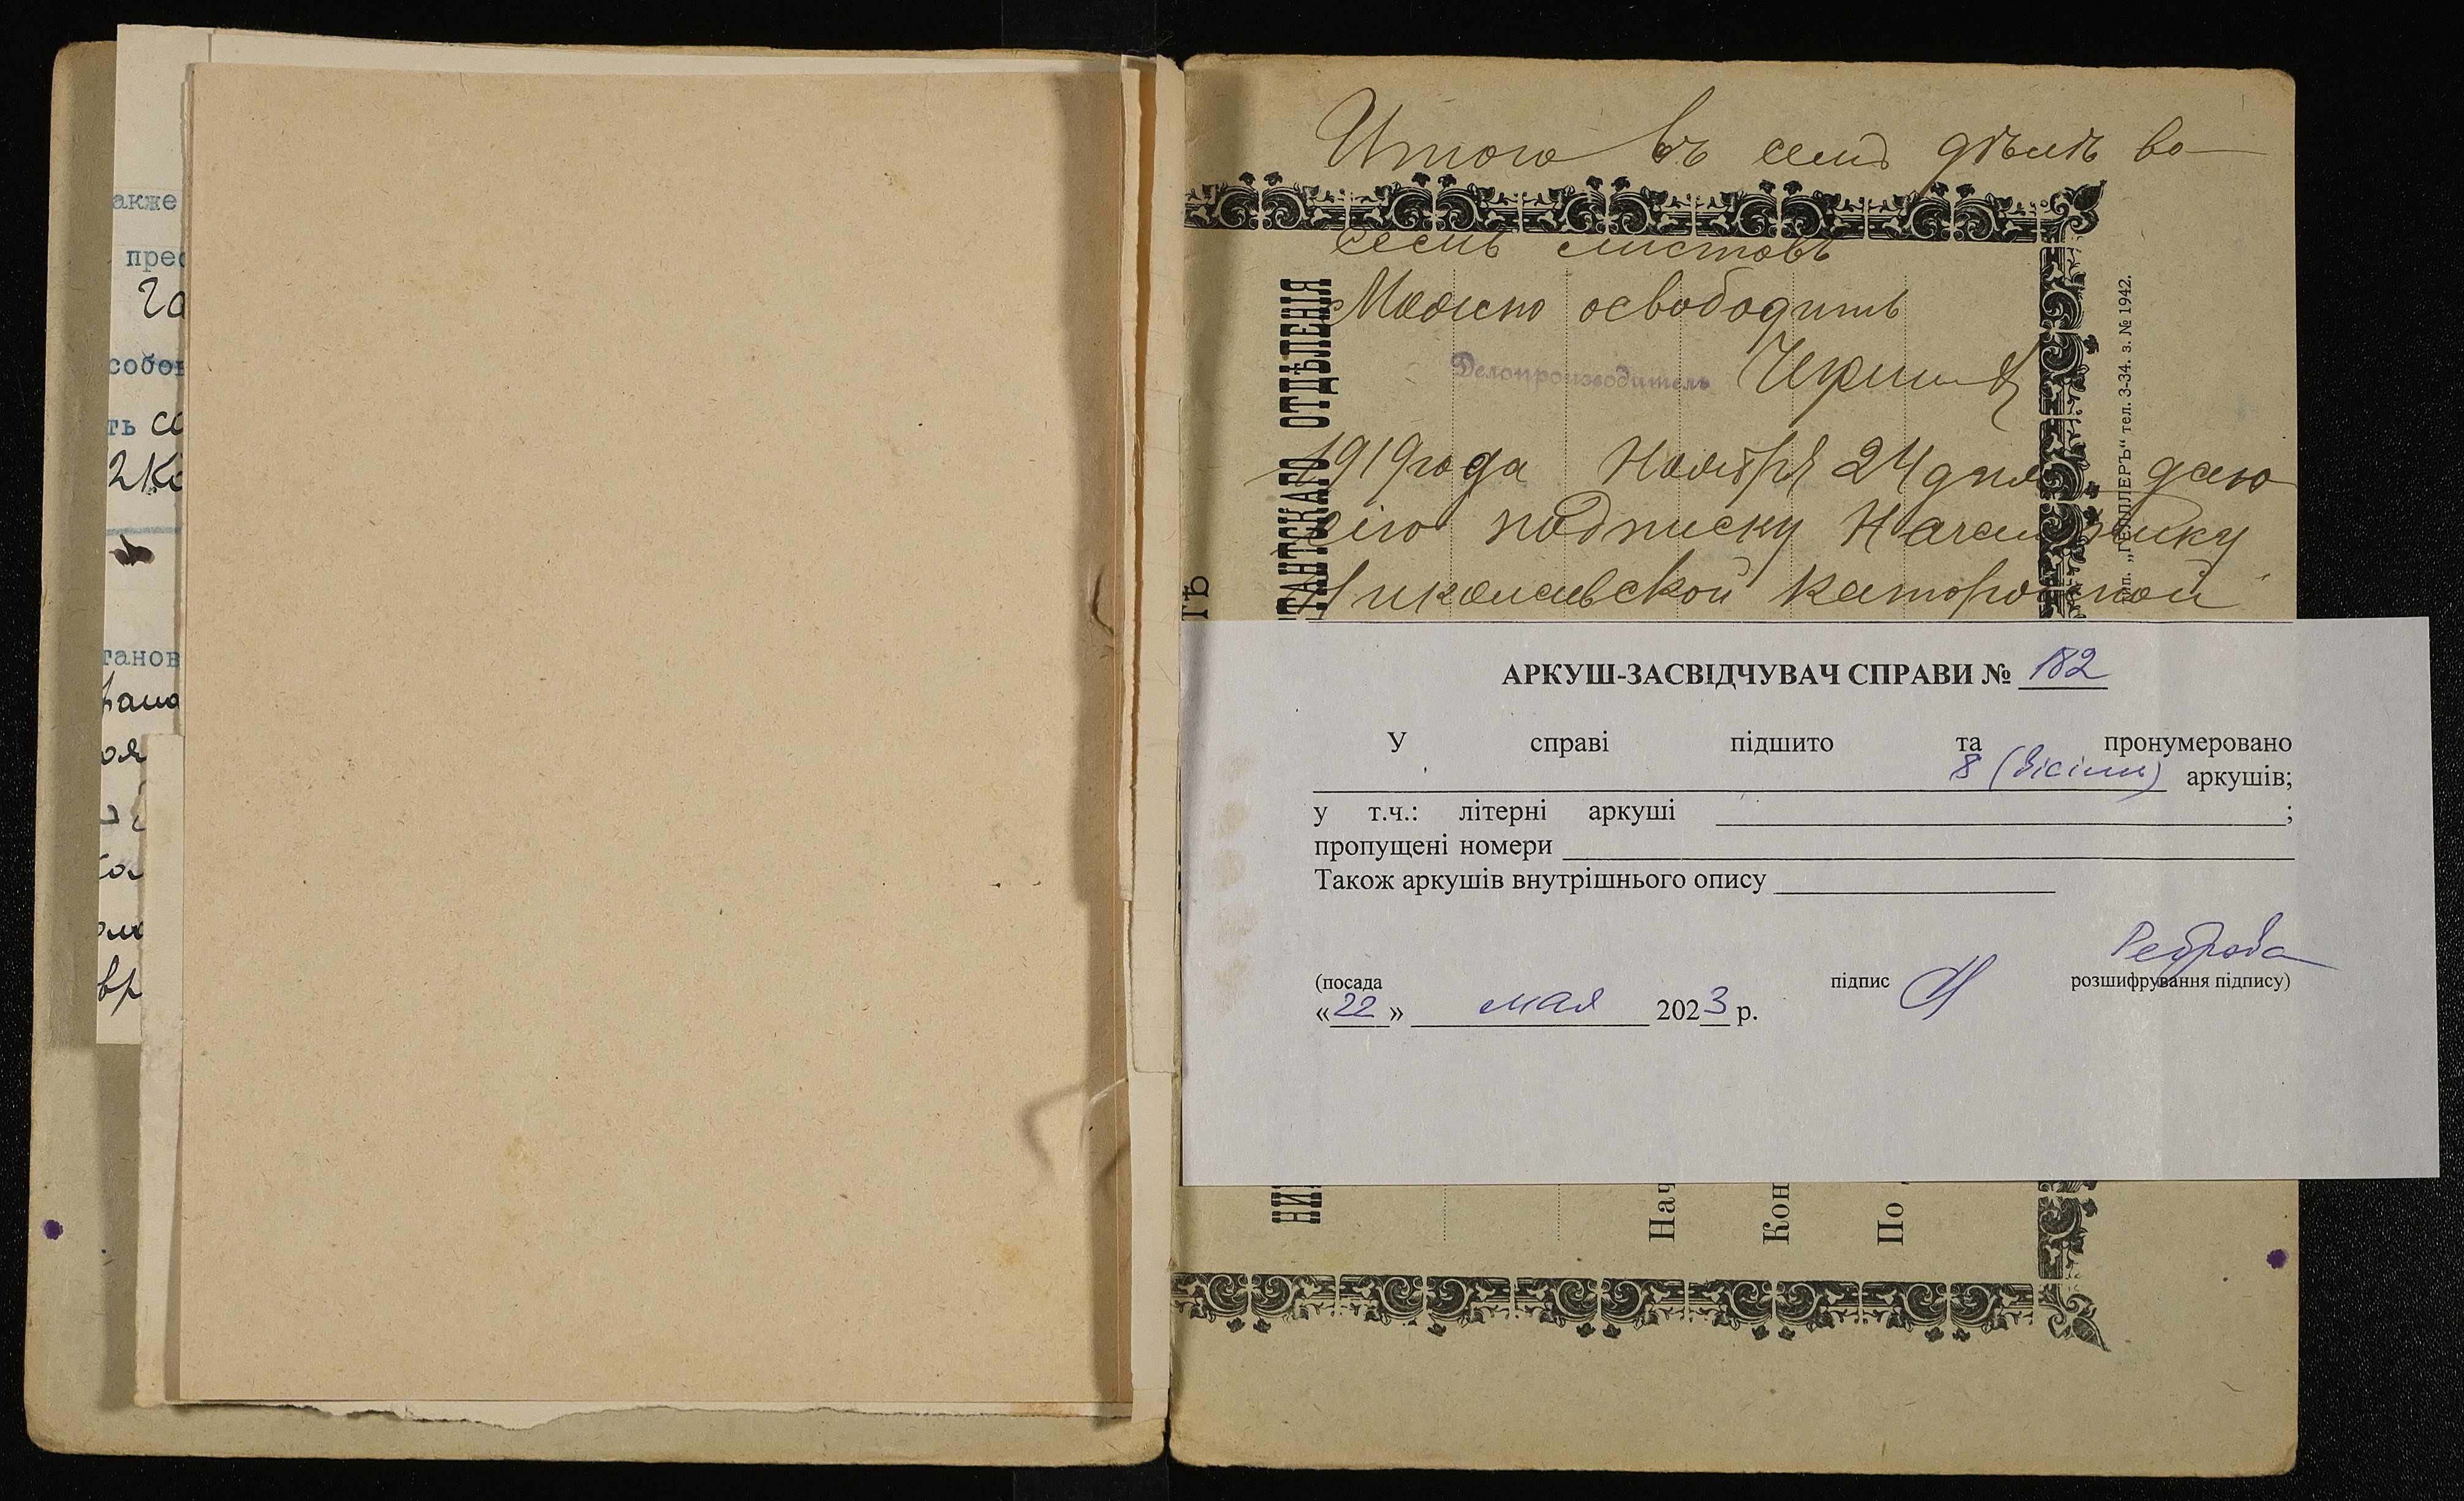 акже
прес
го
собов
ть со
танов
вр
Итого въ семъ дѣлѣ во-
семь листовъ
Можно освободить
Делопроизводитель
1919 года Ноября 24 дня даю
сію подписку Начальнику
Николаевской каторжной
АРКУШ-ЗАСВІДЧУВАЧ СПРАВИ № 182
У справі підшито та пронумеровано
8 (вісім) аркушів;
у т.ч.: літерні аркуші ;
пропущені номери
Також аркушів внутрішнього опису
Реброва
(посада підпис розшифрування підпису)
«22» мая 2023 р.
ТАНТСКАГО ОТДѢЛЕНІЯ
ТѢ
НИ
Нач
Кон
По
„ГЕЛЛЕРЪ“ тел. 3-34. з. № 1942.